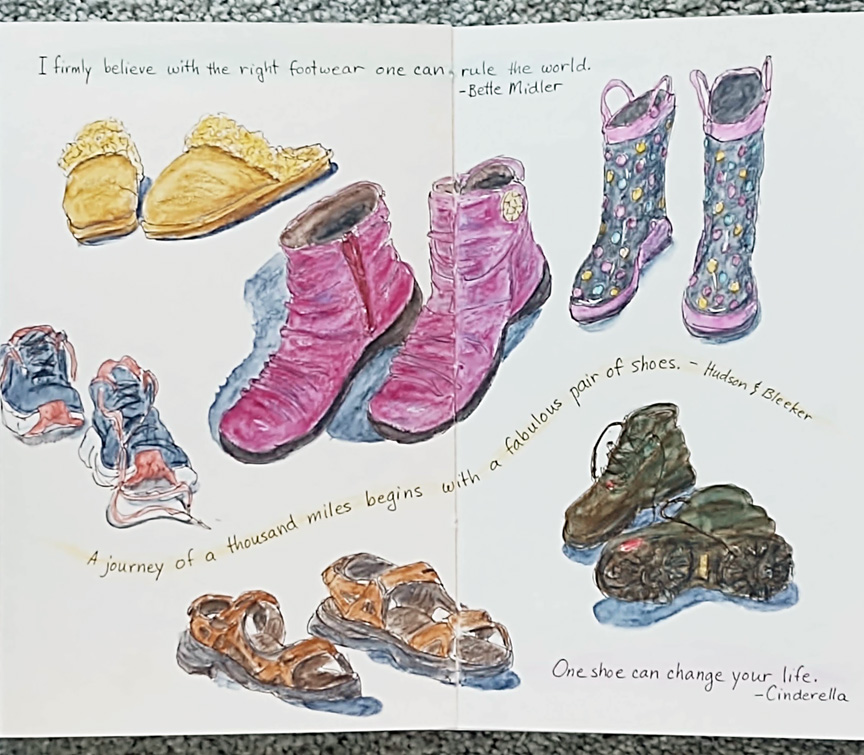 I firmly believe with the right footwear one can rule the world.
-Bette Midler
A journey of a thousand miles begins with a fabulous pair of shoes. - Hudson & Bleeker
One shoe can change your life.
-Cinderella